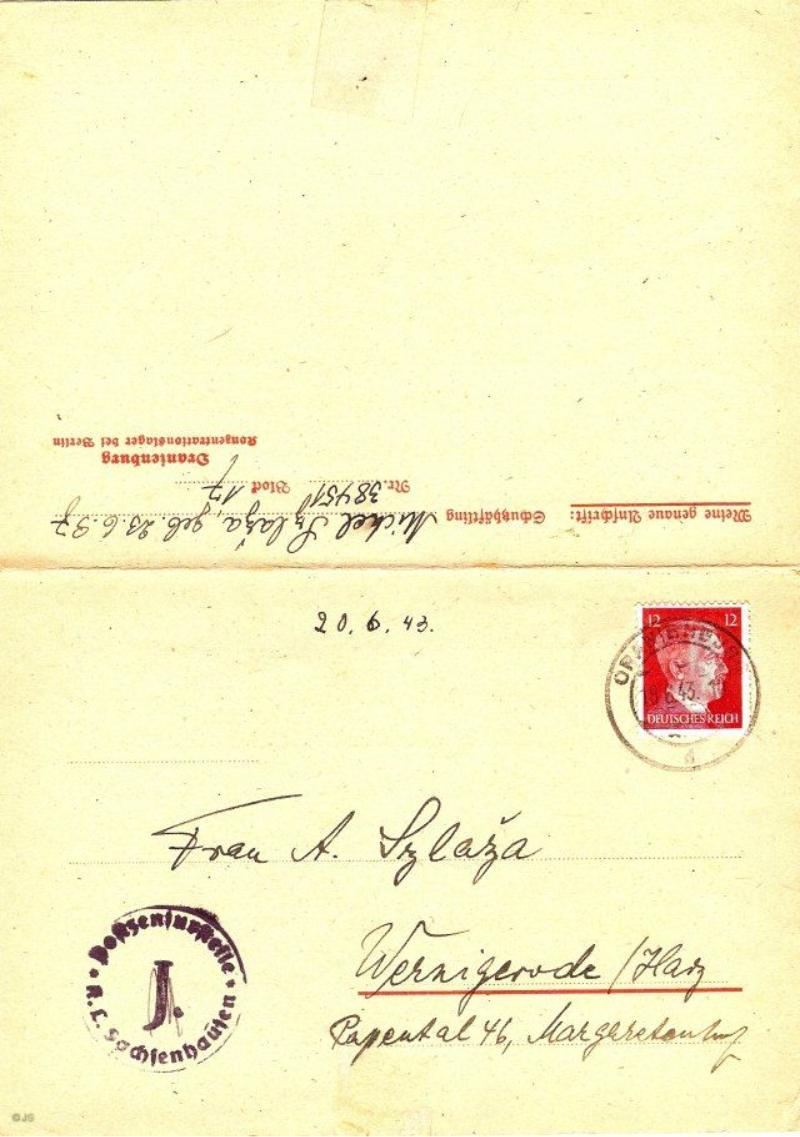 Meine genaue Anschrift:
Schutzhäftling Michel Szlaža, geb. 23.6.97
Nr. 38451 Block 17
Oranienburg
Konzentrationslager bei Berlin
20. 6. 43.
12 12
DEUTSCHES REICH
Frau A. Szlaža
Postzensurstelle
J.
K.L. Sachsenhausen
Wernigerode / Harz
Papental 46, Margaretenhof
©JS